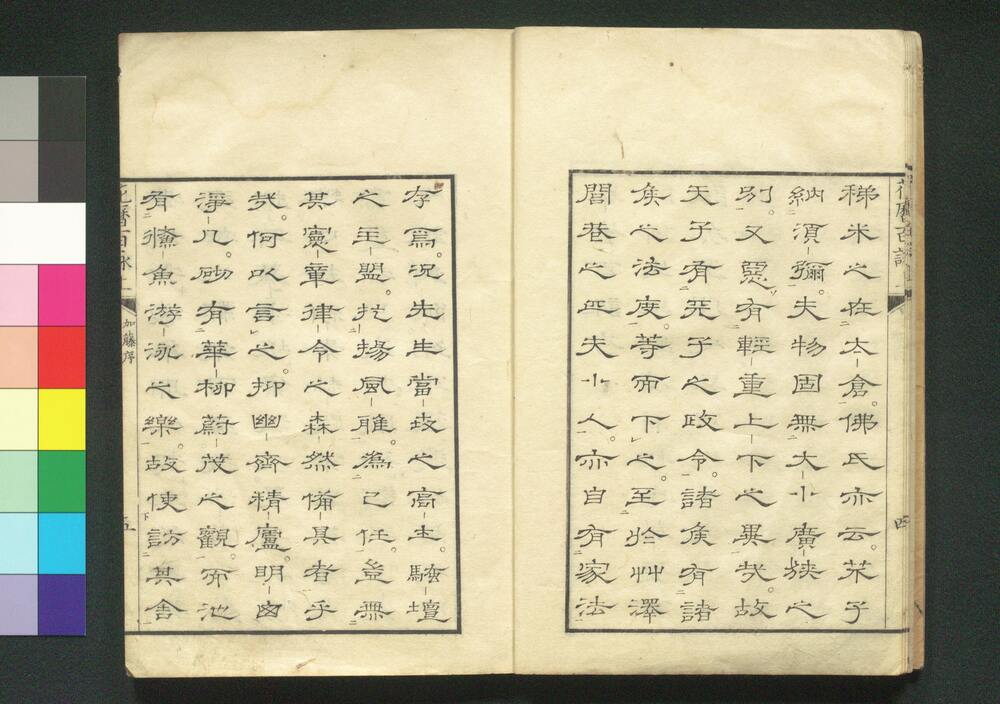 稊米之在太倉。佛氏亦云。芥子
納須彌。夫物固無大小廣狹之
別。又惡有輕重上下之異哉。故
天子有天子之政令。諸矦有諸
矦之法度。等而下之。至於艸澤
閭巷之匹夫小人。亦自有家法
存焉。況先生當故之高主。騷壇
之主盟。扢揚風雅。為己任。豈無
其憲章律令之森然備具者乎
哉。何以言之。抑幽齊精廬。明囪
淨几。砌有華柳蔚茂之觀。而池
有儵魚游泳之樂。故使訪其舍
花曆百詠
加藤序
五
花曆百詠
四